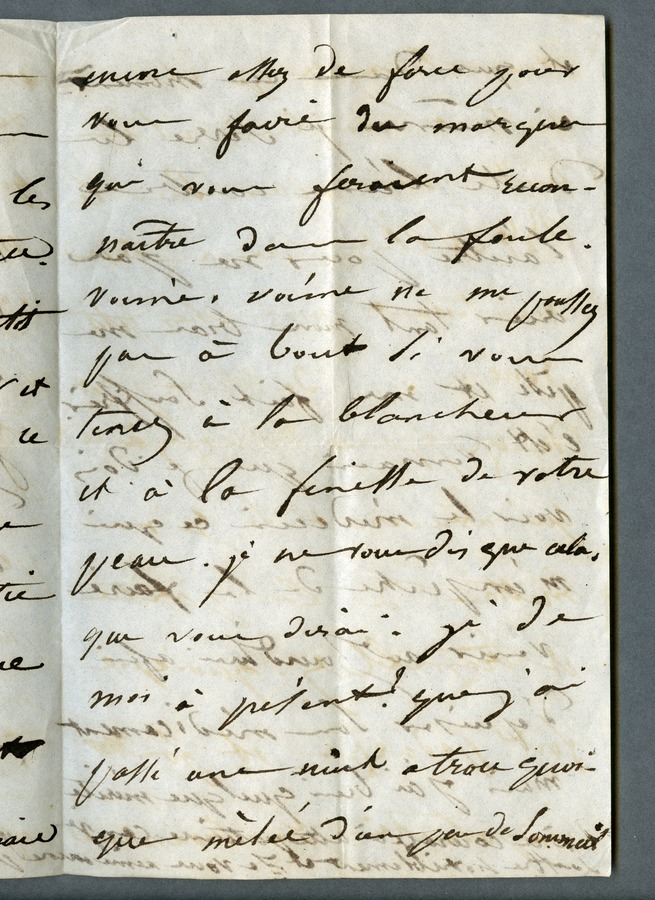 encore assez de force pour
vous faire des marques
qui vous feroient recon-
naître dans la foule.
voisine, voisine ne me poussez
pas à bout si vous
tenez à la blancheur
et à la finesse de votre
peau. je ne vous dis que cela.
que vous dirai-je de
moi à présent? que j'ai
passé une nuit atroce quoi-
que mêlée d'un peu de sommeil
les